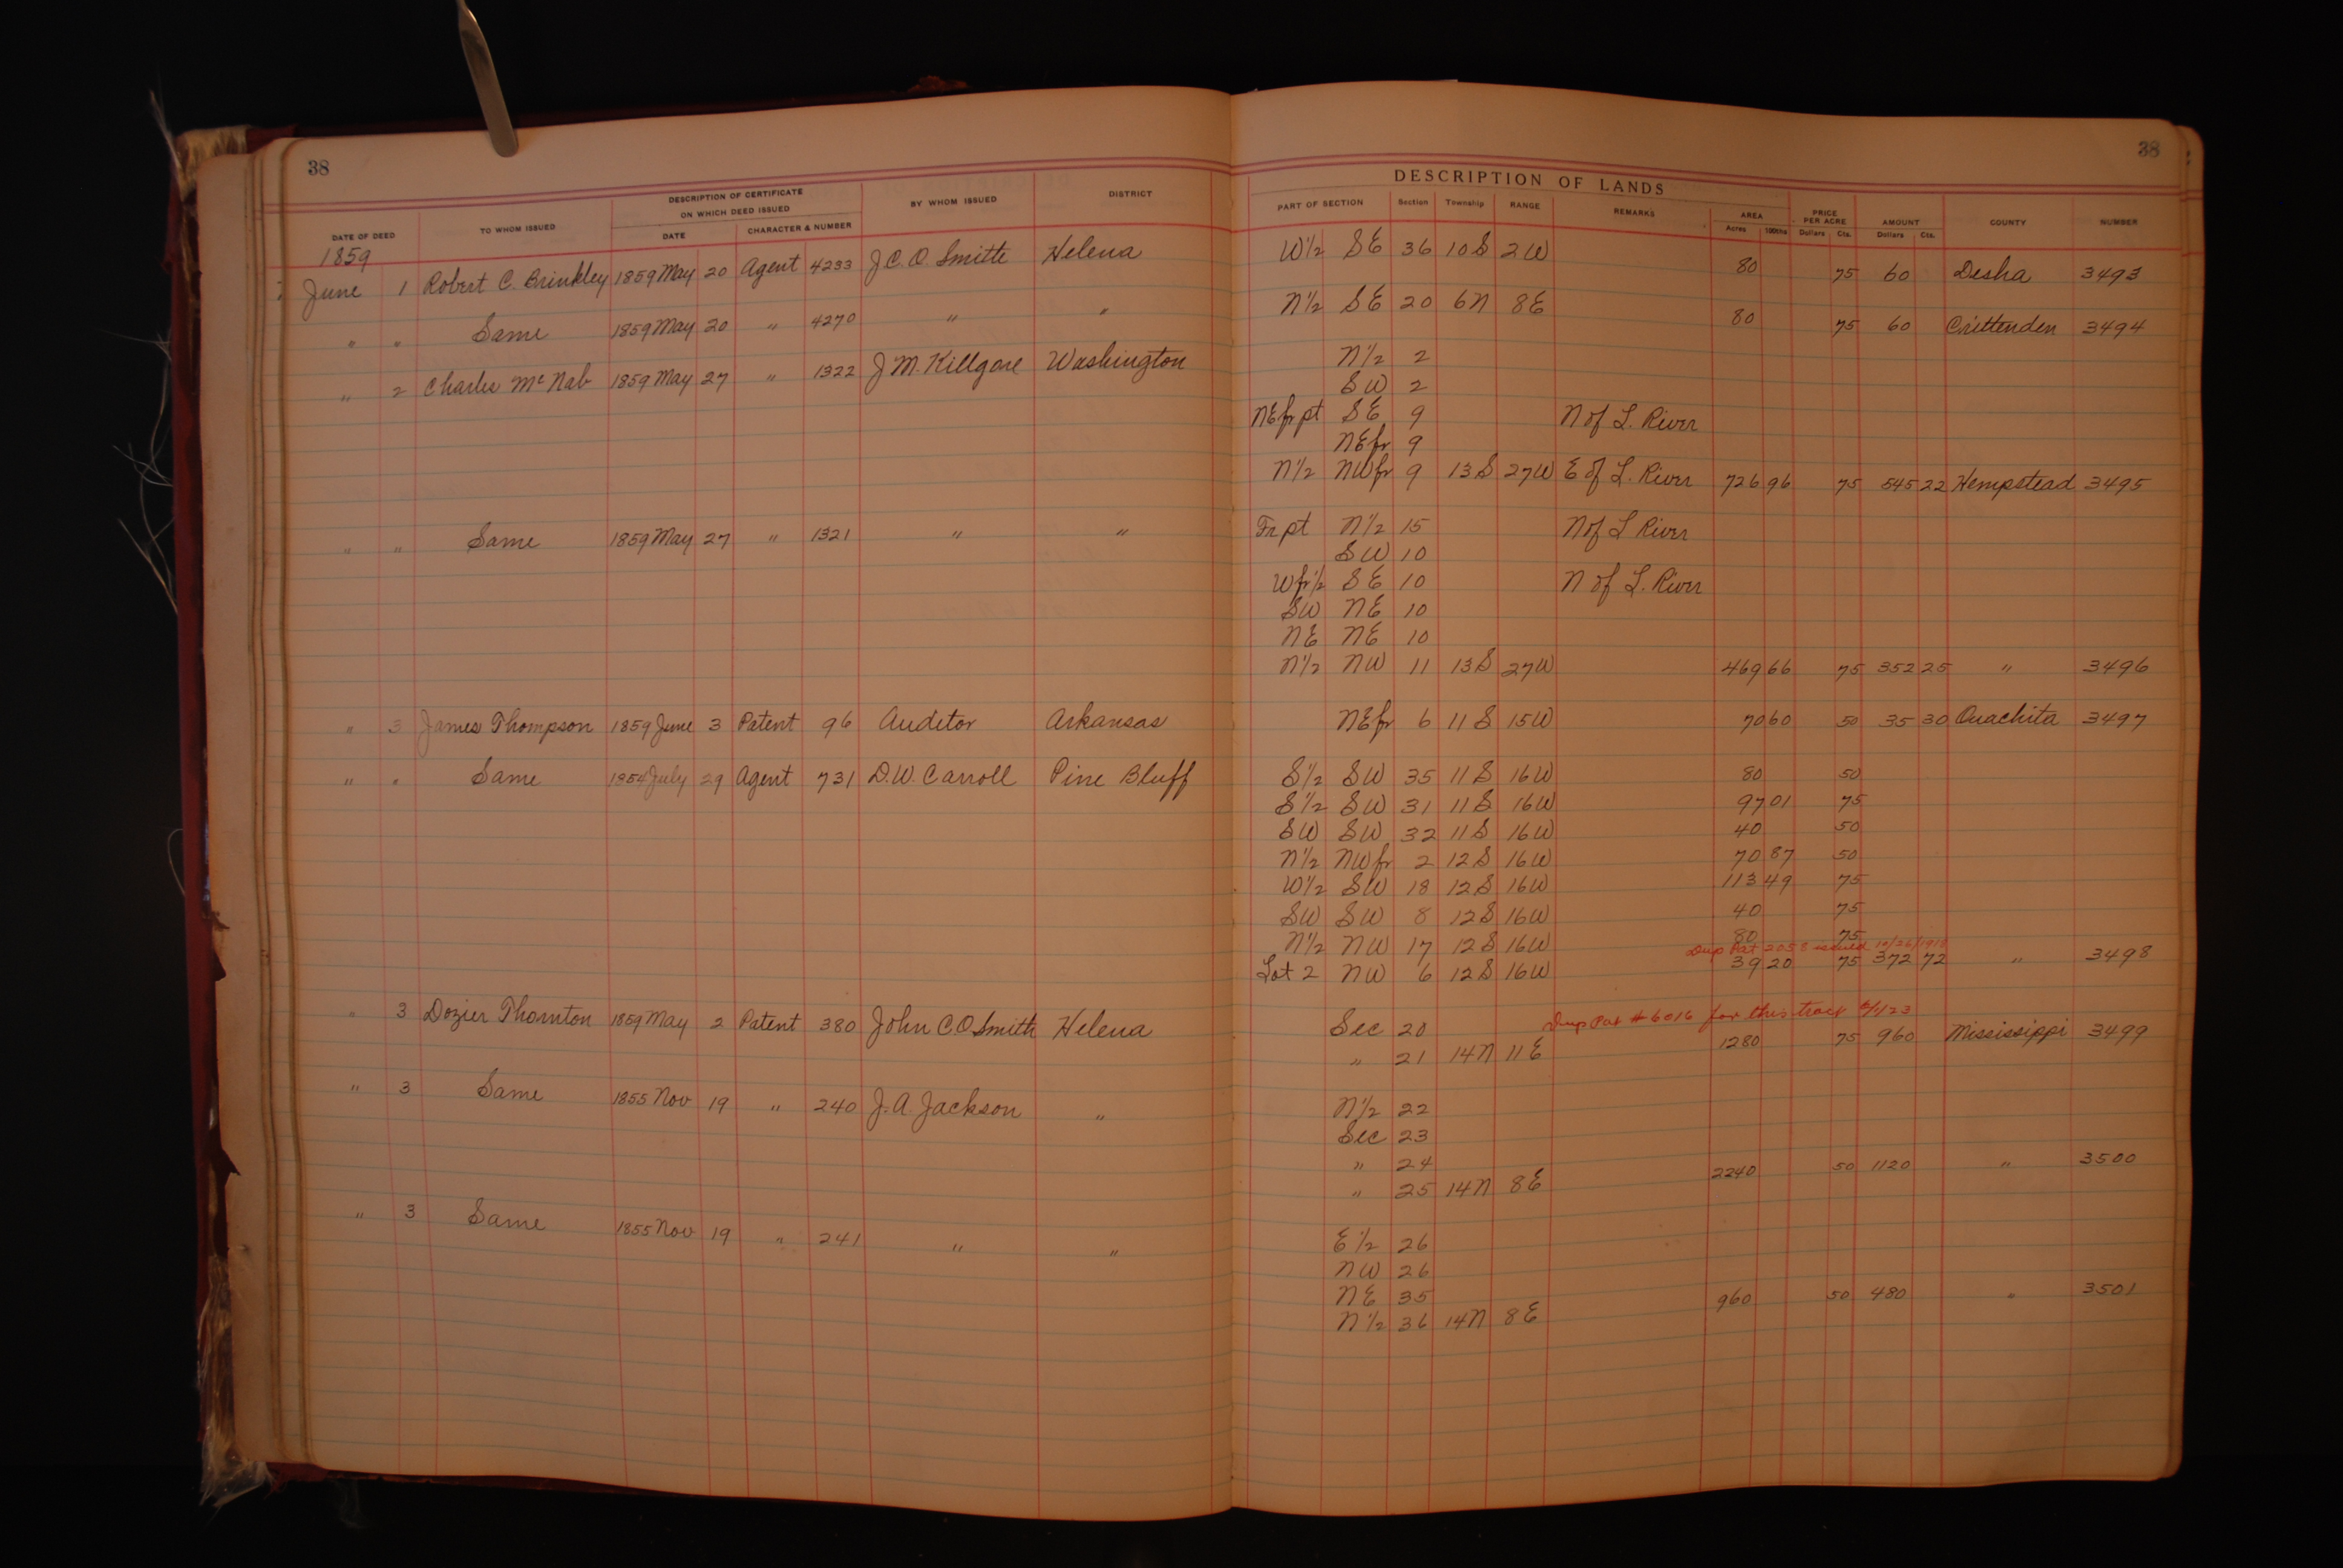 38
DESCRIPTION OF CERTIFICATE
ON WHICH DEED ISSUED
DATE OF DEED TO WHOM ISSUED DATE CHARACTER & NUMBER BY WHOM ISSUED DISTRICT
1859
June 1 Robert C. Brinkley 1859 May 20 Agent 4233 J.C.O. Smith Helena
" " Same 1859 May 20 " 4270 " "
" 2 Charles McNab 1859 May 27 " 1322 J M. Killgore Washington
" " Same 1859 May 27 " 1321 " "
" 3 James Thompson 1859 June 3 Patent 96 Auditor Arkansas
" " Same 1854 July 29 Agent 731 D.W. Carroll Pine Bluff
" 3 Dozier Thornton 1859 May 2 Patent 380 John C O Smith Helena
" 3 Same 1855 Nov 19 " 240 J.A. Jackson "
" 3 Same 1855 Nov 19 " 241 " "
38
DESCRIPTION OF LANDS
PART OF SECTION Section Township RANGE REMARKS AREA Acres 100ths PRICE PER ACRE Dollars Cts. AMOUNT Dollars Cts. COUNTY NUMBER
W½ SE 36 10S 2W 80 75 60 Desha 3493
N½ SE 20 6N 8E 80 75 60 Crittenden 3494
N½ 2
SW 2
NEfrpt SE 9 N of L. River
NEfr 9
N½ NWfr 9 13S 27W E of L. River 726 96 75 545 22 Hempstead 3495
Fr pt N½ 15 N of L River
SW 10
Wfr½ SE 10 N of L. River
SW NE 10
NE NE 10
N½ NW 11 13S 27W 469 66 75 352 25 " 3496
NEfr 6 11S 15W 70 60 50 35 30 Ouachita 3497
S½ SW 35 11S 16W 80 50
S½ SW 31 11S 16W 97 01 75
SW SW 32 11S 16W 40 50
N½ NWfr 2 12S 16W 70 87 50
W½ SW 18 12S 16W 113 49 75
SW SW 8 12S 16W 40 75
N½ NW 17 12S 16W 80 75
Dup Pat 2058 issued 10/26/1918
Lot 2 NW 6 12S 16W 39 20 75 372 72 " 3498
Dup Pat # 6016 for this tract
Sec 20
" 21 14N 11E 1280 75 960 Mississippi 3499
N½ 22
Sec 23
" 24
" 25 14N 8E 2240 50 1120 " 3500
E½ 26
NW 26
NE 35
N½ 36 14N 8E 960 50 480 " 3501